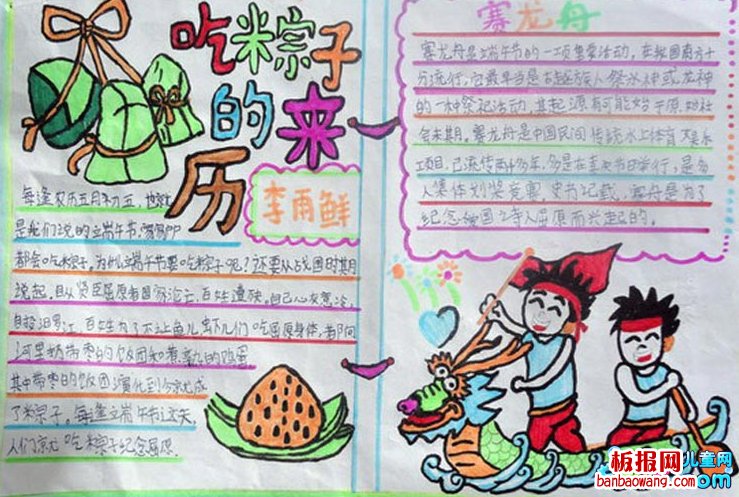 吃米宗子
的来
历
李雨鲜
每逢农历五月初五,也就
是我们说的立端午节
都会吃米宗子,为什么立端午节要吃米宗子呢?还要从战国时期
说起,
自投汨罗江,百姓为了不让鱼儿虾儿们吃屈原身体,都向
河里扔带枣的饭团和煮熟的鸡蛋
其中带枣的饭团演化到今
了米宗子,每逢立端午节这天,
人们就吃米宗子纪念屈原。
赛龙舟
赛龙舟是立端午节的一项重要活动,在我国南方十
分流行,它最早当是古越族人祭水神或龙神
的一种祭祀活动,其起源有可能始于原始社
会末期。赛龙舟是中国民间传统水上体育娱乐
项目,已流传两千多年,多是在喜庆节日举行,是多
人集体划桨竞赛。史书记载,赛舟是为了
纪念爱国诗人屈原而兴起的。
板报网
儿童网
banbaowang.com
om